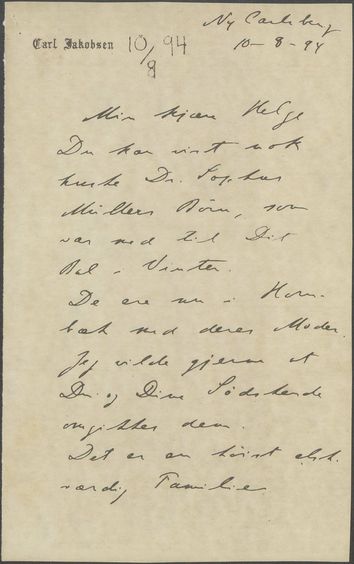 Ny Carlsberg
10-8-94
Carl Jakobsen 10/8 94
Min kjære Helge
Du kan vist nok
huske Dr. Sophus
Müllers Børn, som
var med til Dit
Bal i Vinter.
De ere nu i Horn-
bæk med deres Moder.
Jeg vilde gjerne at
Du og Dine Sødskende
omgikkes dem.
Det er en høist elsk-
værdig Familie